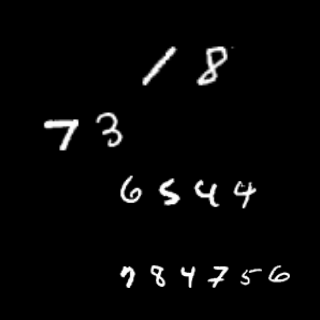 18
73
6544
784756